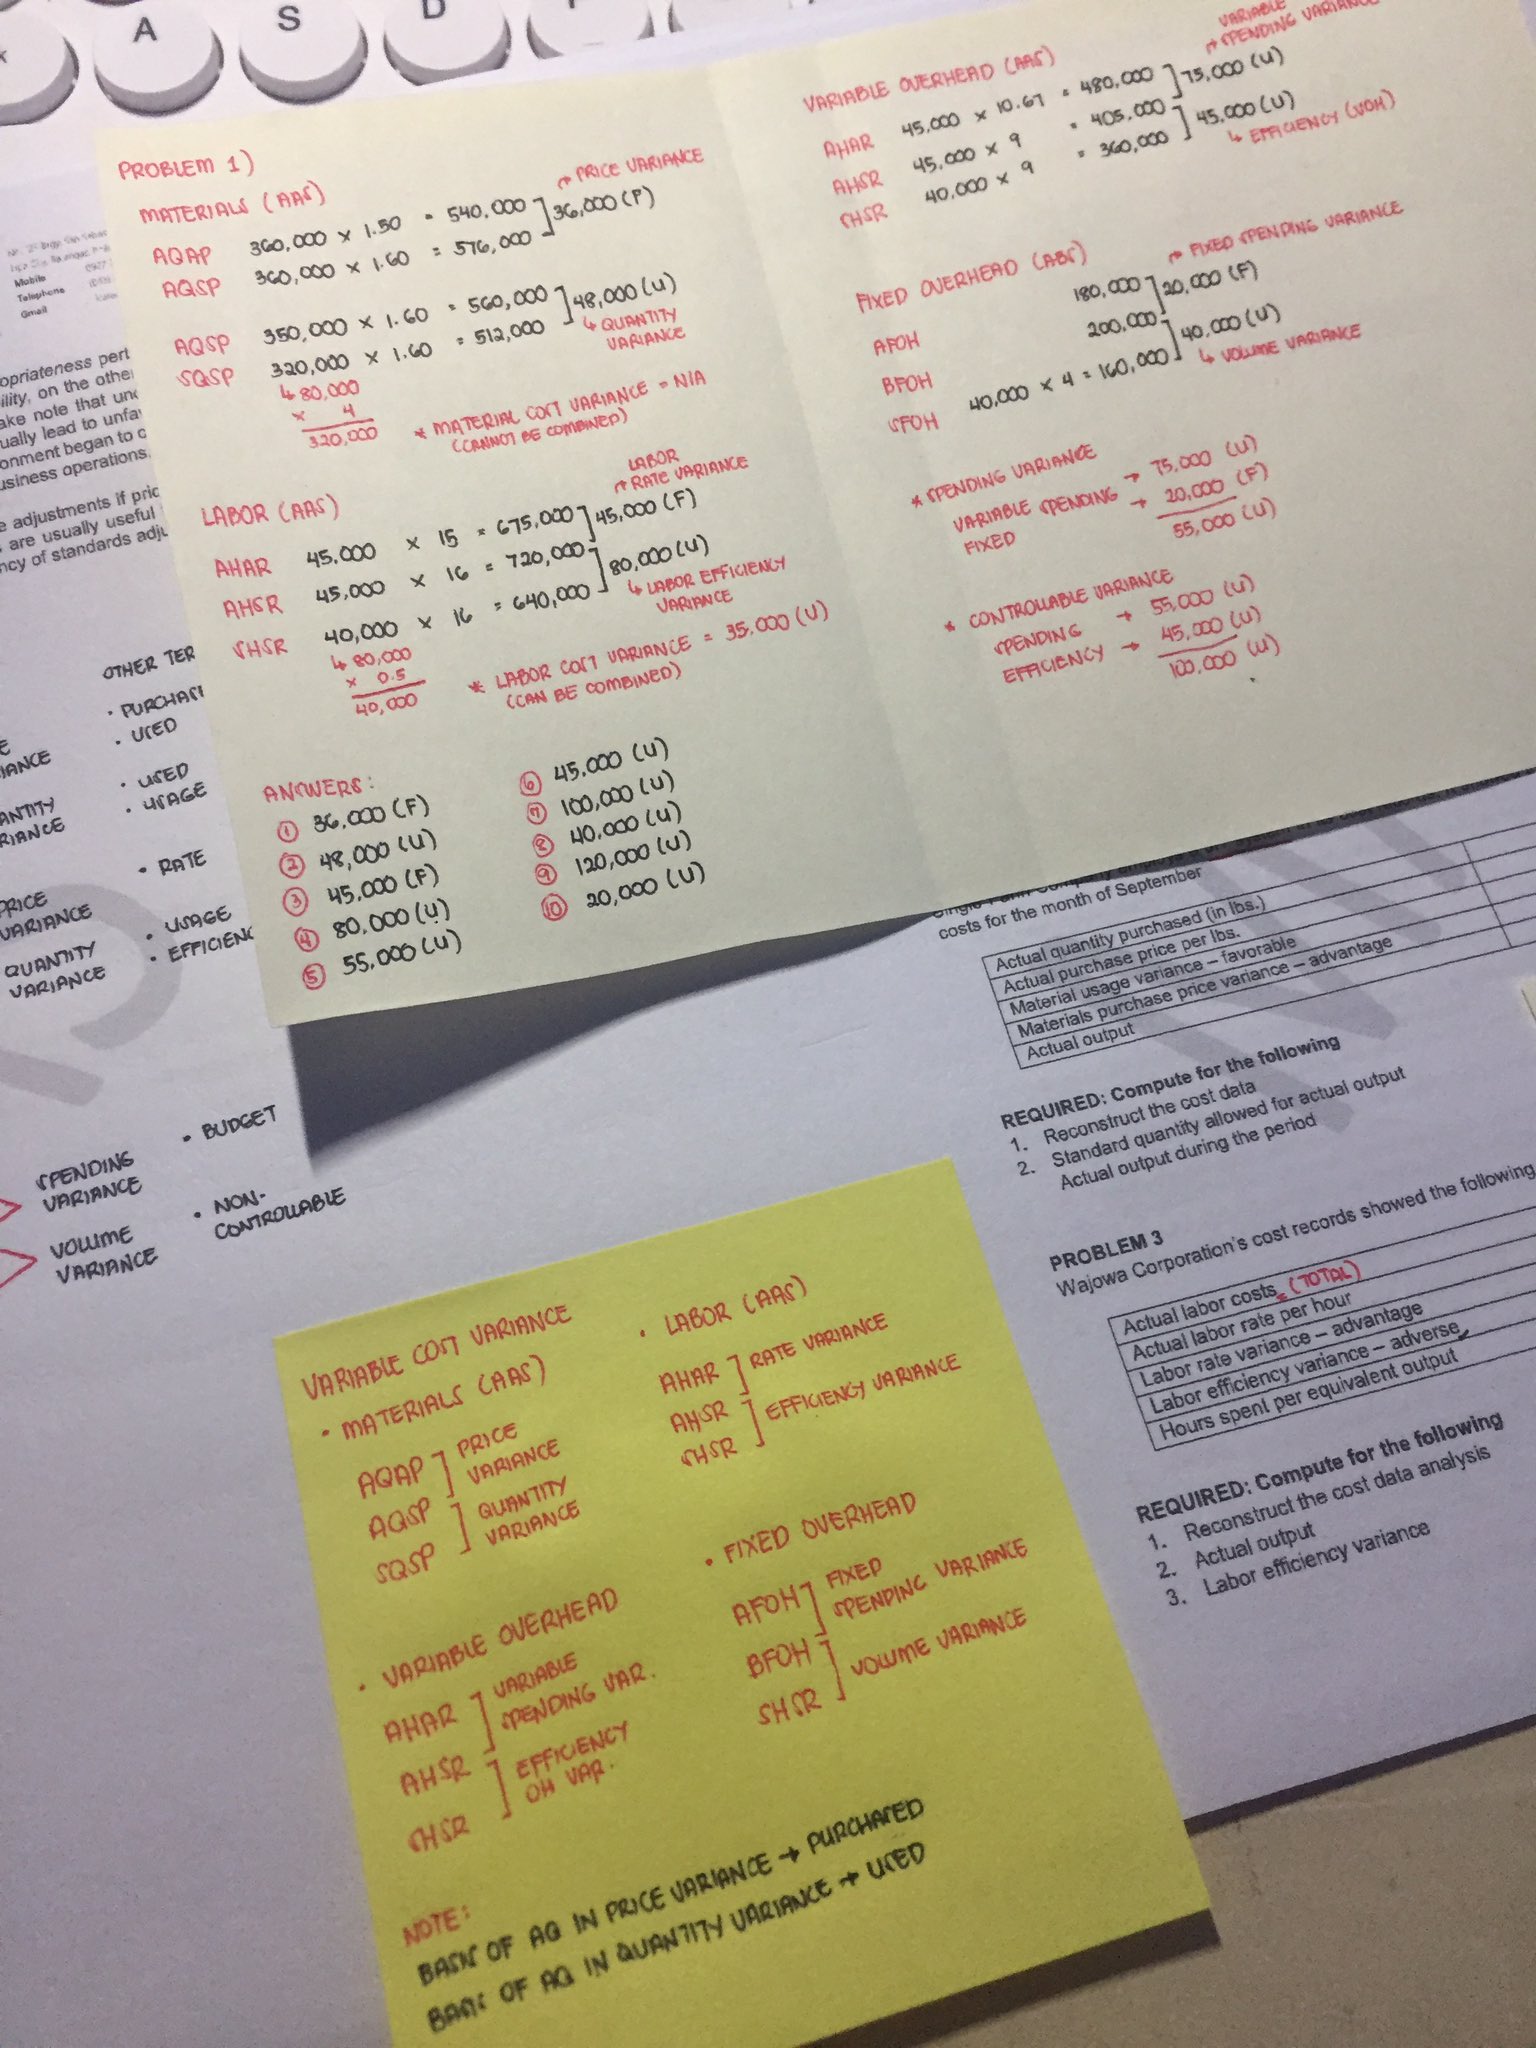 A
S
D
PROBLEM 1)
MATERIALS (AAS)
AQAP 360,000 × 1.50 = 540,000
AQSP 360,000 × 1.60 = 576,000
36,000 (F)
↱ PRICE VARIANCE
AQSP 350,000 × 1.60 = 560,000
SQSP 320,000 × 1.60 = 512,000
48,000 (U)
↳ QUANTITY
VARIANCE
↳ 80,000
× 4
320,000
* MATERIAL COST VARIANCE = N/A
(CANNOT BE COMBINED)
LABOR (AAS)
LABOR
↱ RATE VARIANCE
AHAR 45,000 × 15 = 675,000
45,000 (F)
AHSR 45,000 × 16 = 720,000
80,000 (U)
SHSR 40,000 × 16 = 640,000
↳ LABOR EFFICIENCY
VARIANCE
↳ 80,000
× 0.5
40,000
* LABOR COST VARIANCE = 35,000 (U)
(CAN BE COMBINED)
ANSWERS:
① 36,000 (F)
② 48,000 (U)
③ 45,000 (F)
④ 80,000 (U)
⑤ 55,000 (U)
⑥ 45,000 (U)
⑦ 100,000 (U)
⑧ 40,000 (U)
⑨ 120,000 (U)
⑩ 20,000 (U)
VARIABLE OVERHEAD (AAS)
VARIABLE
↱ SPENDING VARIANCE
AHAR 45,000 × 10.67 = 480,000
75,000 (U)
AHSR 45,000 × 9 = 405,000
45,000 (U)
SHSR 40,000 × 9 = 360,000
↳ EFFICIENCY (VOH)
FIXED OVERHEAD (ABS)
↱ FIXED SPENDING VARIANCE
AFOH 180,000
20,000 (F)
BFOH 200,000
40,000 (U)
SFOH 40,000 × 4 = 160,000
↳ VOLUME VARIANCE
* SPENDING VARIANCE
VARIABLE SPENDING → 75,000 (U)
FIXED → 20,000 (F)
55,000 (U)
* CONTROLLABLE VARIANCE
SPENDING → 55,000 (U)
EFFICIENCY → 45,000 (U)
100,000 (U)
Mobile
Telephone
Gmail
opropriateness pert
bility, on the othe
ake note that und
ually lead to unfa
onment began to c
usiness operations.
e adjustments if pric
are usually useful
ncy of standards adju
OTHER TER
• PURCHAS
• USED
IANCE
• USED
• USAGE
ANTITY
RIANCE
• RATE
PRICE
VARIANCE
• USAGE
• EFFICIENC
QUANTITY
VARIANCE
• BUDGET
SPENDING
VARIANCE
• NON-
CONTROLLABLE
VOLUME
VARIANCE
costs for the month of September
Actual quantity purchased (in lbs.)
Actual purchase price per lbs.
Material usage variance – favorable
Materials purchase price variance – advantage
Actual output
REQUIRED: Compute for the following
1. Reconstruct the cost data
2. Standard quantity allowed for actual output
Actual output during the period
PROBLEM 3
Wajowa Corporation's cost records showed the following
Actual labor costs (TOTAL)
Actual labor rate per hour
Labor rate variance – advantage
Labor efficiency variance – adverse
Hours spent per equivalent output
REQUIRED: Compute for the following
1. Reconstruct the cost data analysis
2. Actual output
3. Labor efficiency variance
VARIABLE COST VARIANCE
• MATERIALS (AAS)
AQAP
AQSP
SQSP
PRICE
VARIANCE
QUANTITY
VARIANCE
• LABOR (AAS)
AHAR
AHSR
SHSR
RATE VARIANCE
EFFICIENCY VARIANCE
• VARIABLE OVERHEAD
AHAR
AHSR
SHSR
VARIABLE
SPENDING VAR.
EFFICIENCY
OH VAR.
• FIXED OVERHEAD
AFOH
BFOH
SHSR
FIXED
SPENDING VARIANCE
VOLUME VARIANCE
NOTE:
BASIS OF AQ IN PRICE VARIANCE → PURCHASED
BASIS OF AQ IN QUANTITY VARIANCE → USED